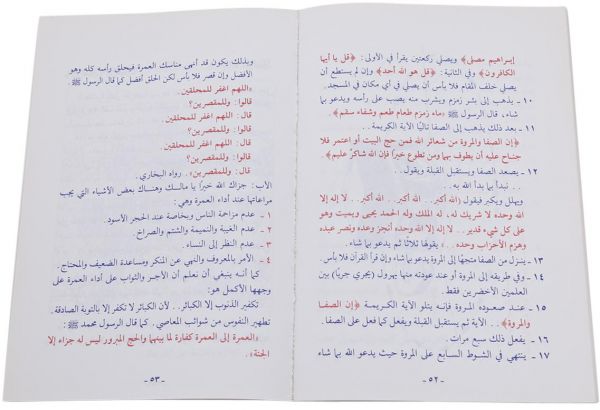 إبراهيم مصلى﴾ ويصلي ركعتين يقرأ في الأولى: ﴿قل يا أيها
الكافرون﴾ وفي الثانية: ﴿قل هو الله أحد﴾ وإن لم يستطع أن
يصلي خلف المقام فلا بأس أن يصلي في أي مكان في المسجد.
١٠ - يذهب إلى بئر زمزم ويشرب منه يصب على رأسه ويدعو بما
شاء، قال الرسول ﷺ: «ماء زمزم طعام طعم وشفاء سقم».
١١ - بعد ذلك يذهب إلى الصفا تاليًا الآية الكريمة..
﴿إن الصفا والمروة من شعائر الله فمن حج البيت أو اعتمر فلا
جناح عليه أن يطوف بهما ومن تطوع خيرًا فإن الله شاكرٌ عليم﴾.
١٢ - يصعد الصفا ويستقبل القبلة ويقول..
.. نبدأ بما بدأ الله به..
ويهلل ويكبر فيقول «الله أكبر.. الله أكبر.. الله أكبر.. لا إله إلا
الله وحده لا شريك له، له الملك وله الحمد يحيى ويميت وهو
على كل شيء قدير.. لا إله إلا الله وحده أنجز وعده ونصر عبده
وهزم الأحزاب وحده..» يقولها ثلاثًا ثم يدعو بما شاء.
١٣ - ينزل من الصفا متجهًا إلى المروة يدعو بما شاء وإن قرأ القرآن فلا بأس.
١٤ - وفي طريقه إلى المروة أو عند عودته منها يهرول (يجري جريًا) بين
العلمين الأخضرين فقط.
١٥ - عند صعوده المروة فإنه يتلو الآية الكريمة ﴿إن الصفا
والمروة﴾.. الآية ثم يستقبل القبلة ويفعل كما فعل على الصفا.
١٦ - يفعل ذلك سبع مرات.
١٧ - ينتهي في الشوط السابع على المروة حيث يدعو الله بما شاء
- ٥٢ -
وبذلك يكون قد أنهى مناسك العمرة فيحلق رأسه كله وهو
الأفضل وإن قصر فلا بأس لكن الحلق أفضل كما قال الرسول ﷺ
«اللهم اغفر للمحلقين.
قالوا: وللمقصرين؟
قال: اللهم اغفر للمحلقين.
قالوا: وللمقصرين.
قال: اللهم اغفر للمحلقين.
قالوا: وللمقصرين؟
قال: وللمقصرين». رواه البخاري.
الأب: جزاك الله خيرًا يا مالك وهناك بعض الأشياء التي يجب
مراعاتها عند أداء العمرة وهي:
١ - عدم مزاحمة الناس وبخاصة عند الحجر الأسود.
٢ - عدم الغيبة والنميمة والشتم والصراخ.
٣ - عدم النظر إلى النساء.
٤ - الأمر بالمعروف والنهي عن المنكر ومساعدة الضعيف والمحتاج.
كما أنه ينبغي أن نعلم أن الأجر والثواب على أداء العمرة على
وجهها الأكمل هو:
تكفير الذنوب إلا الكبائر.. لأن الكبائر لا تكفر إلا بالتوبة الصادقة.
تطهير النفوس من شوائب المعاصي، كما قال الرسول محمد ﷺ:
«العمرة إلى العمرة كفارة لما بينهما والحج المبرور ليس له جزاء إلا
الجنة».
- ٥٣ -